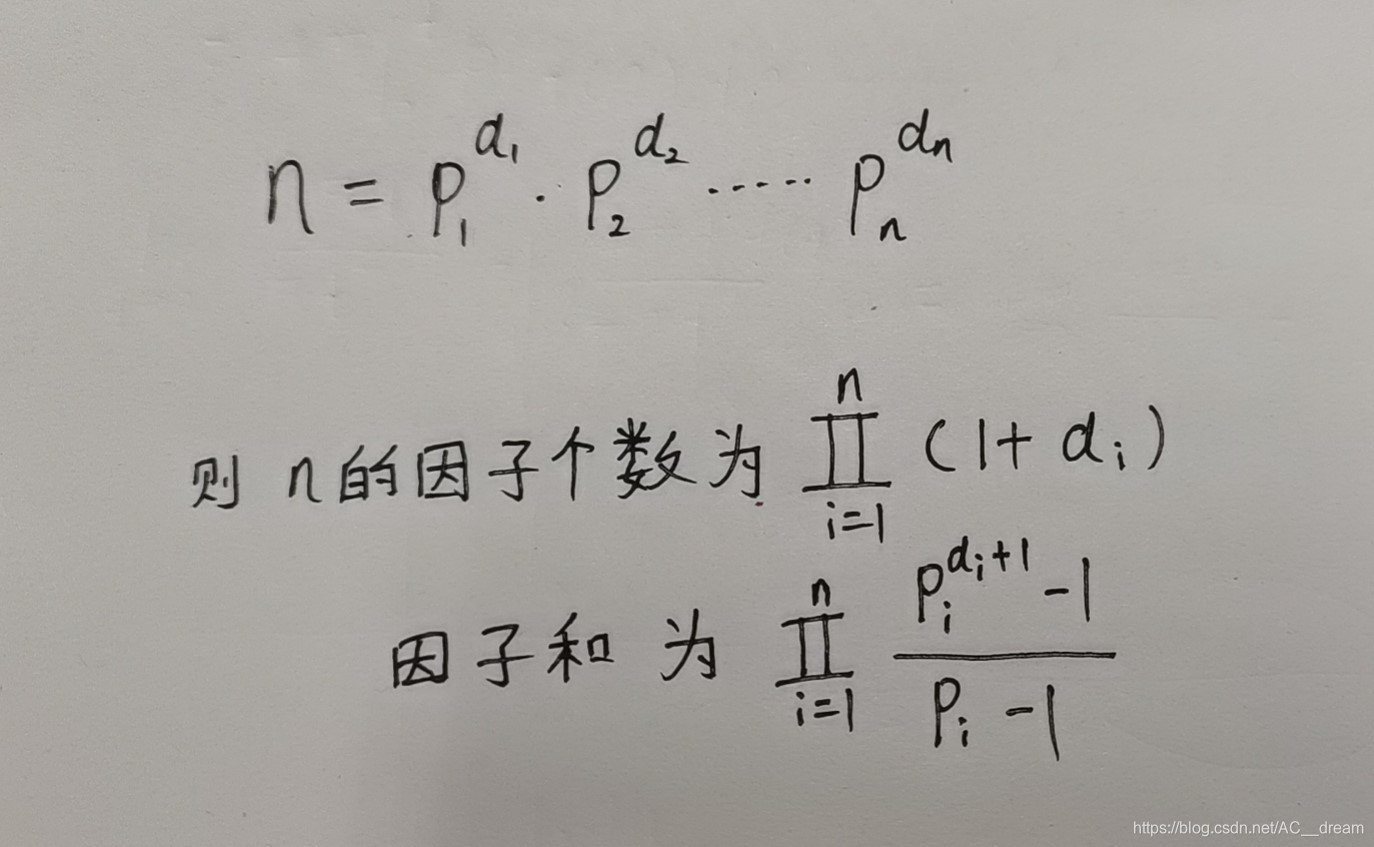 n = p₁^d₁ · p₂^d₂ ······ pₙ^dₙ
则 n 的因子个数为 ∏_{i=1}^{n} (1+dᵢ)
因子和为 ∏_{i=1}^{n} (pᵢ^{dᵢ+1} -1)/(pᵢ -1)
https://blog.csdn.net/AC__dream